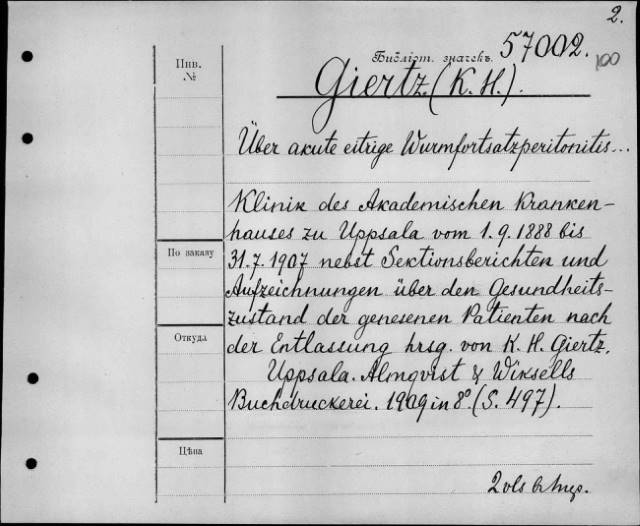 2.
Библіот. значекъ. 57002.
100
Инв. №
Giertz (K. H.).
Über akute eitrige Wurmfortsatzperitonitis...
Klinik des Akademischen Kranken-
hauses zu Uppsala vom 1. 9. 1888 bis
По заказу
31. 7. 1907 nebst Sektionsberichten und
Aufzeichnungen über den Gesundheits-
zustand der genesenen Patienten nach
Откуда
der Entlassung hrsg. von K. H. Giertz.
Uppsala. Almqvist & Wiksells
Buchdruckerei. 1909 in 8° (S. 497).
Цѣна
2 vls